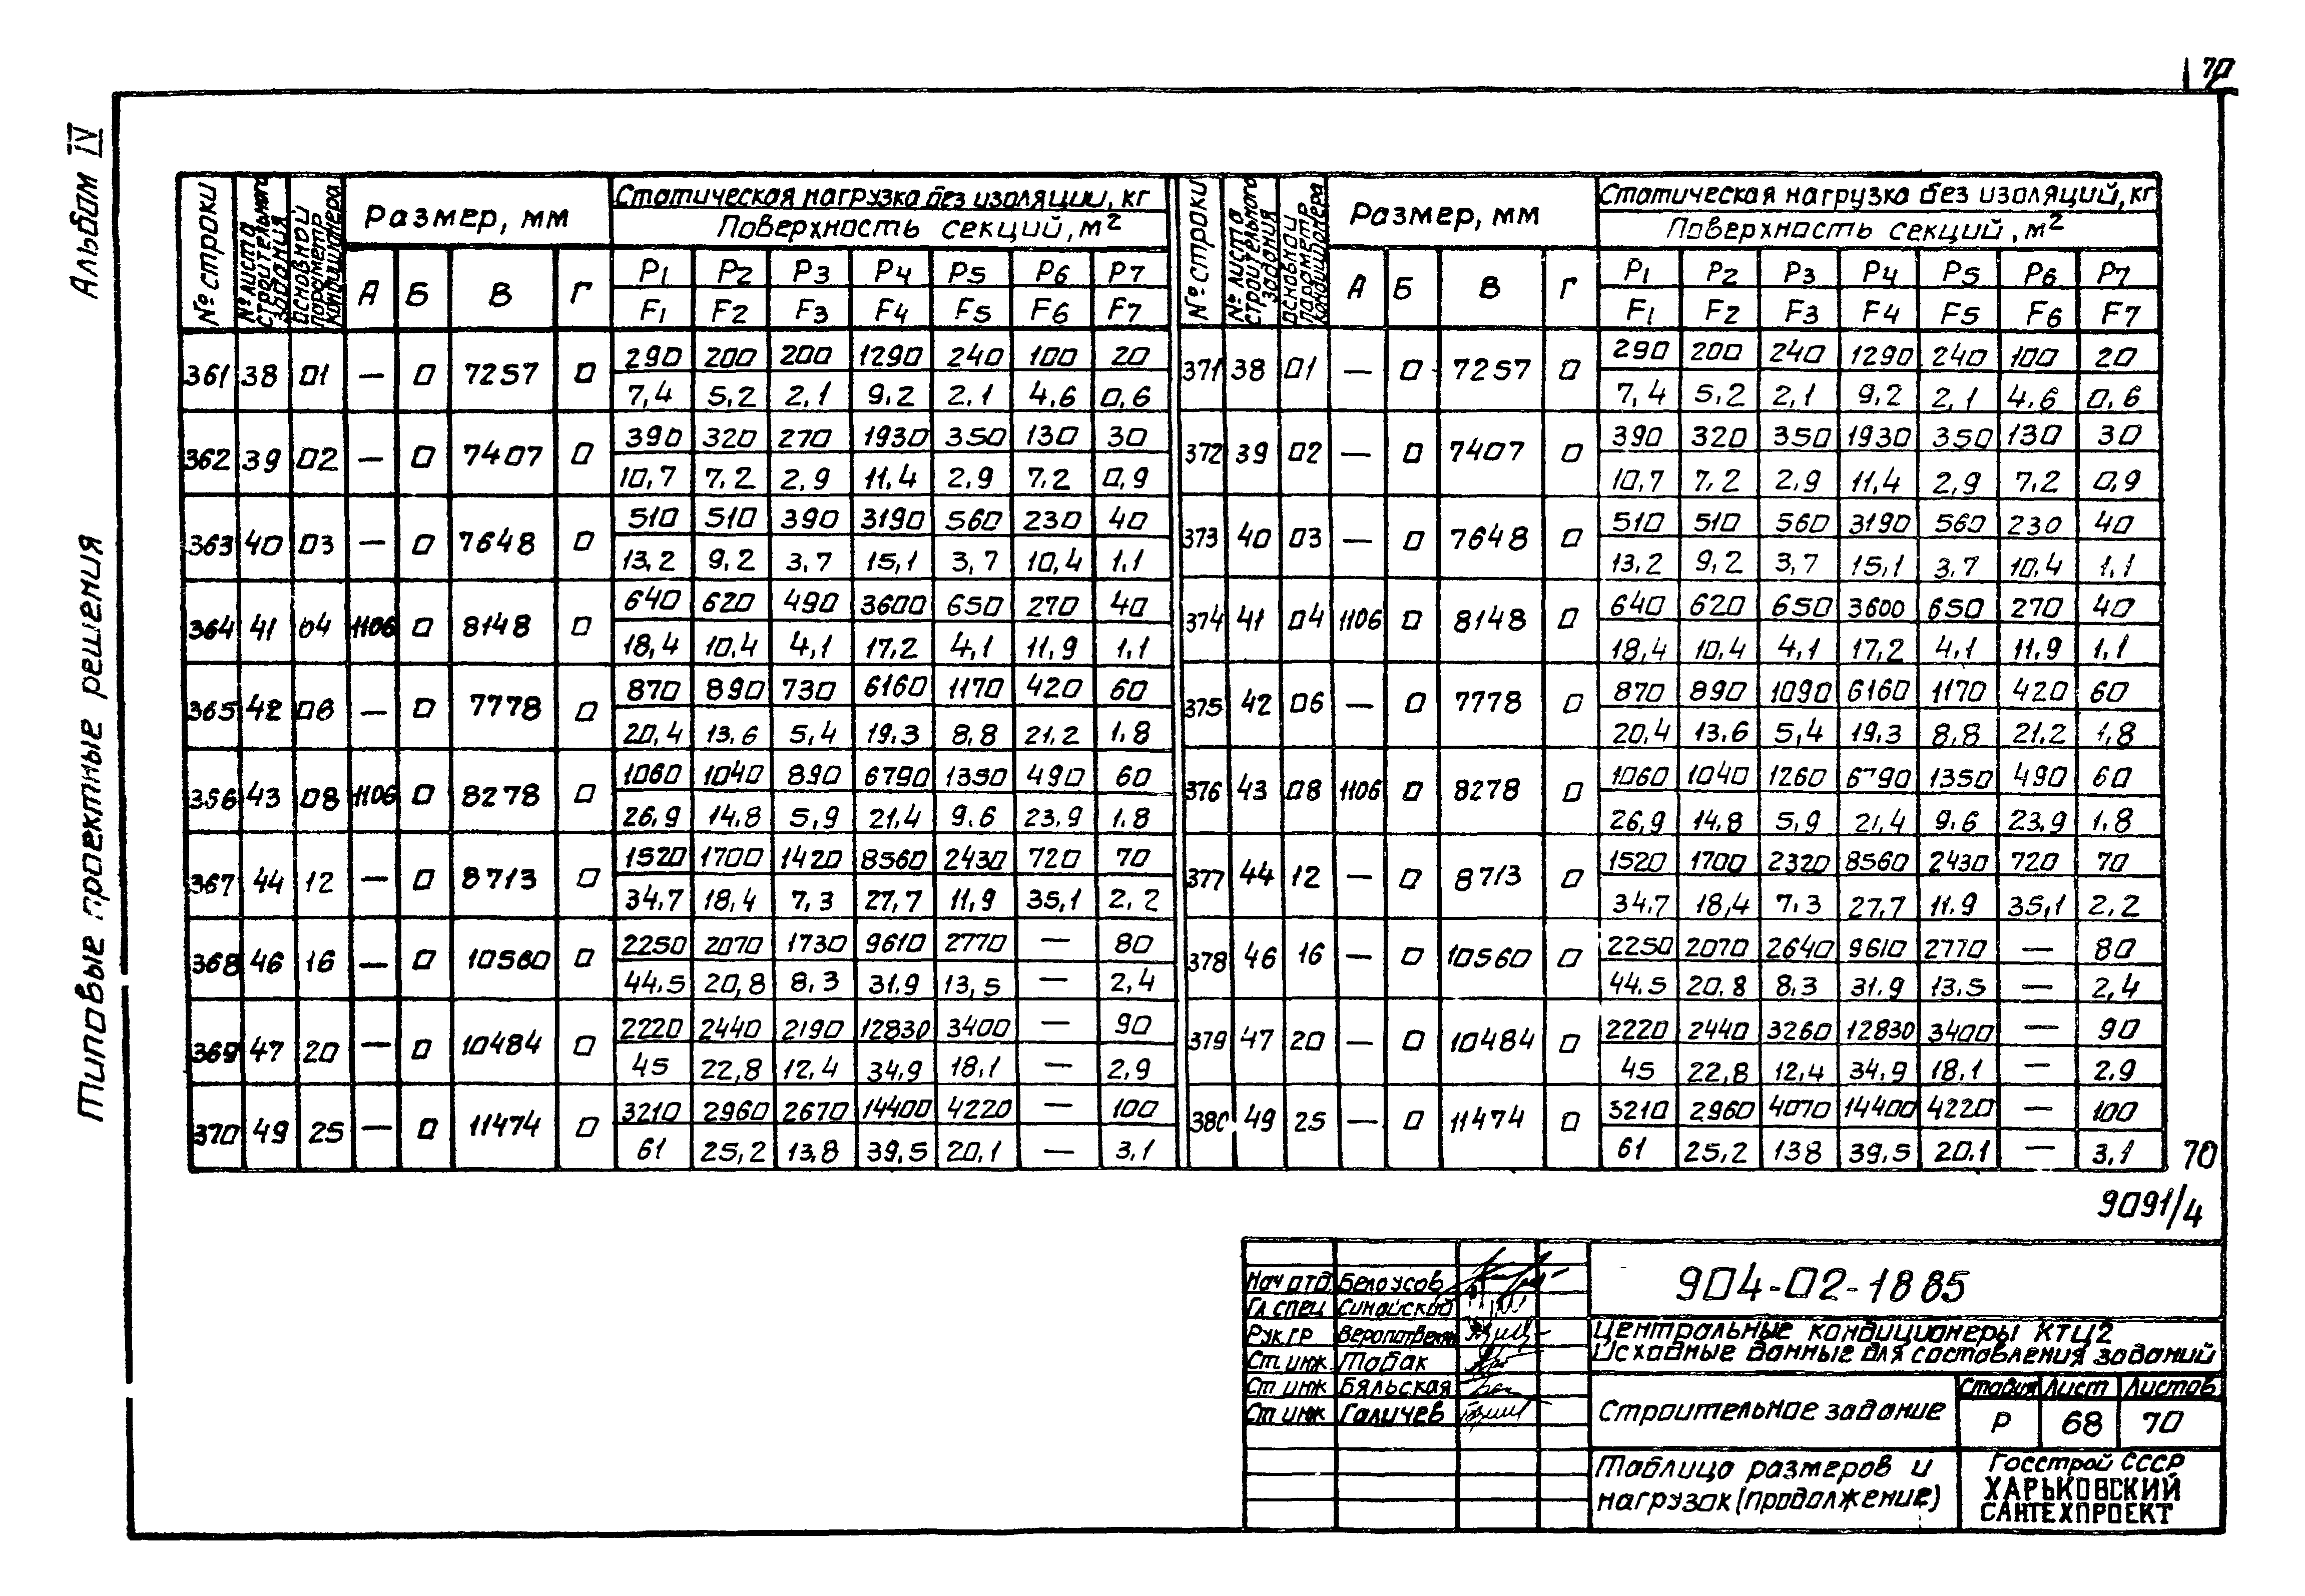 70
Альбом IV
Типовые проектные решения
№ строки | № листа строительного задания | Основной параметр кондиционера | Размер, мм | Статическая нагрузка без изоляции, кг
Поверхность секций, м²
А | Б | В | Г | P1 | P2 | P3 | P4 | P5 | P6 | P7
F1 | F2 | F3 | F4 | F5 | F6 | F7
361 | 38 | 01 | — | 0 | 7257 | 0 | 290 | 200 | 200 | 1290 | 240 | 100 | 20
7,4 | 5,2 | 2,1 | 9,2 | 2,1 | 4,6 | 0,6
362 | 39 | 02 | — | 0 | 7407 | 0 | 390 | 320 | 270 | 1930 | 350 | 130 | 30
10,7 | 7,2 | 2,9 | 11,4 | 2,9 | 7,2 | 0,9
363 | 40 | 03 | — | 0 | 7648 | 0 | 510 | 510 | 390 | 3190 | 560 | 230 | 40
13,2 | 9,2 | 3,7 | 15,1 | 3,7 | 10,4 | 1,1
364 | 41 | 04 | 1106 | 0 | 8148 | 0 | 640 | 620 | 490 | 3600 | 650 | 270 | 40
18,4 | 10,4 | 4,1 | 17,2 | 4,1 | 11,9 | 1,1
365 | 42 | 06 | — | 0 | 7778 | 0 | 870 | 890 | 730 | 6160 | 1170 | 420 | 60
20,4 | 13,6 | 5,4 | 19,3 | 8,8 | 21,2 | 1,8
356 | 43 | 08 | 1106 | 0 | 8278 | 0 | 1060 | 1040 | 890 | 6790 | 1350 | 490 | 60
26,9 | 14,8 | 5,9 | 21,4 | 9,6 | 23,9 | 1,8
367 | 44 | 12 | — | 0 | 8713 | 0 | 1520 | 1700 | 1420 | 8560 | 2430 | 720 | 70
34,7 | 18,4 | 7,3 | 27,7 | 11,9 | 35,1 | 2,2
368 | 46 | 16 | — | 0 | 10560 | 0 | 2250 | 2070 | 1730 | 9610 | 2770 | — | 80
44,5 | 20,8 | 8,3 | 31,9 | 13,5 | — | 2,4
369 | 47 | 20 | — | 0 | 10484 | 0 | 2220 | 2440 | 2190 | 12830 | 3400 | — | 90
45 | 22,8 | 12,4 | 34,9 | 18,1 | — | 2,9
370 | 49 | 25 | — | 0 | 11474 | 0 | 3210 | 2960 | 2670 | 14400 | 4220 | — | 100
61 | 25,2 | 13,8 | 39,5 | 20,1 | — | 3,1
№ строки | № листа строительного задания | Основной параметр кондиционера | Размер, мм | Статическая нагрузка без изоляций, кг
Поверхность секций, м²
А | Б | В | Г | P1 | P2 | P3 | P4 | P5 | P6 | P7
F1 | F2 | F3 | F4 | F5 | F6 | F7
371 | 38 | 01 | — | 0 | 7257 | 0 | 290 | 200 | 240 | 1290 | 240 | 100 | 20
7,4 | 5,2 | 2,1 | 9,2 | 2,1 | 4,6 | 0,6
372 | 39 | 02 | — | 0 | 7407 | 0 | 390 | 320 | 350 | 1930 | 350 | 130 | 30
10,7 | 7,2 | 2,9 | 11,4 | 2,9 | 7,2 | 0,9
373 | 40 | 03 | — | 0 | 7648 | 0 | 510 | 510 | 560 | 3190 | 560 | 230 | 40
13,2 | 9,2 | 3,7 | 15,1 | 3,7 | 10,4 | 1,1
374 | 41 | 04 | 1106 | 0 | 8148 | 0 | 640 | 620 | 650 | 3600 | 650 | 270 | 40
18,4 | 10,4 | 4,1 | 17,2 | 4,1 | 11,9 | 1,1
375 | 42 | 06 | — | 0 | 7778 | 0 | 870 | 890 | 1090 | 6160 | 1170 | 420 | 60
20,4 | 13,6 | 5,4 | 19,3 | 8,8 | 21,2 | 1,8
376 | 43 | 08 | 1106 | 0 | 8278 | 0 | 1060 | 1040 | 1260 | 6790 | 1350 | 490 | 60
26,9 | 14,8 | 5,9 | 21,4 | 9,6 | 23,9 | 1,8
377 | 44 | 12 | — | 0 | 8713 | 0 | 1520 | 1700 | 2320 | 8560 | 2430 | 720 | 70
34,7 | 18,4 | 7,3 | 27,7 | 11,9 | 35,1 | 2,2
378 | 46 | 16 | — | 0 | 10560 | 0 | 2250 | 2070 | 2640 | 9610 | 2770 | — | 80
44,5 | 20,8 | 8,3 | 31,9 | 13,5 | — | 2,4
379 | 47 | 20 | — | 0 | 10484 | 0 | 2220 | 2440 | 3260 | 12830 | 3400 | — | 90
45 | 22,8 | 12,4 | 34,9 | 18,1 | — | 2,9
380 | 49 | 25 | — | 0 | 11474 | 0 | 3210 | 2960 | 4070 | 14400 | 4220 | — | 100
61 | 25,2 | 138 | 39,5 | 20,1 | — | 3,1
70
9091/4
Нач отд. Белоусов
Гл спец Синайский
Рук.гр
Ст инж. Табак
Ст инж Бяльская
Ст инж Галичев
904-02-1885
Центральные кондиционеры КТЦ2
Исходные данные для составления заданий
Строительное задание
Стадия | Лист | Листов
Р | 68 | 70
Таблица размеров и
нагрузок (продолжение)
Госстрой СССР
ХАРЬКОВСКИЙ
САНТЕХПРОЕКТ